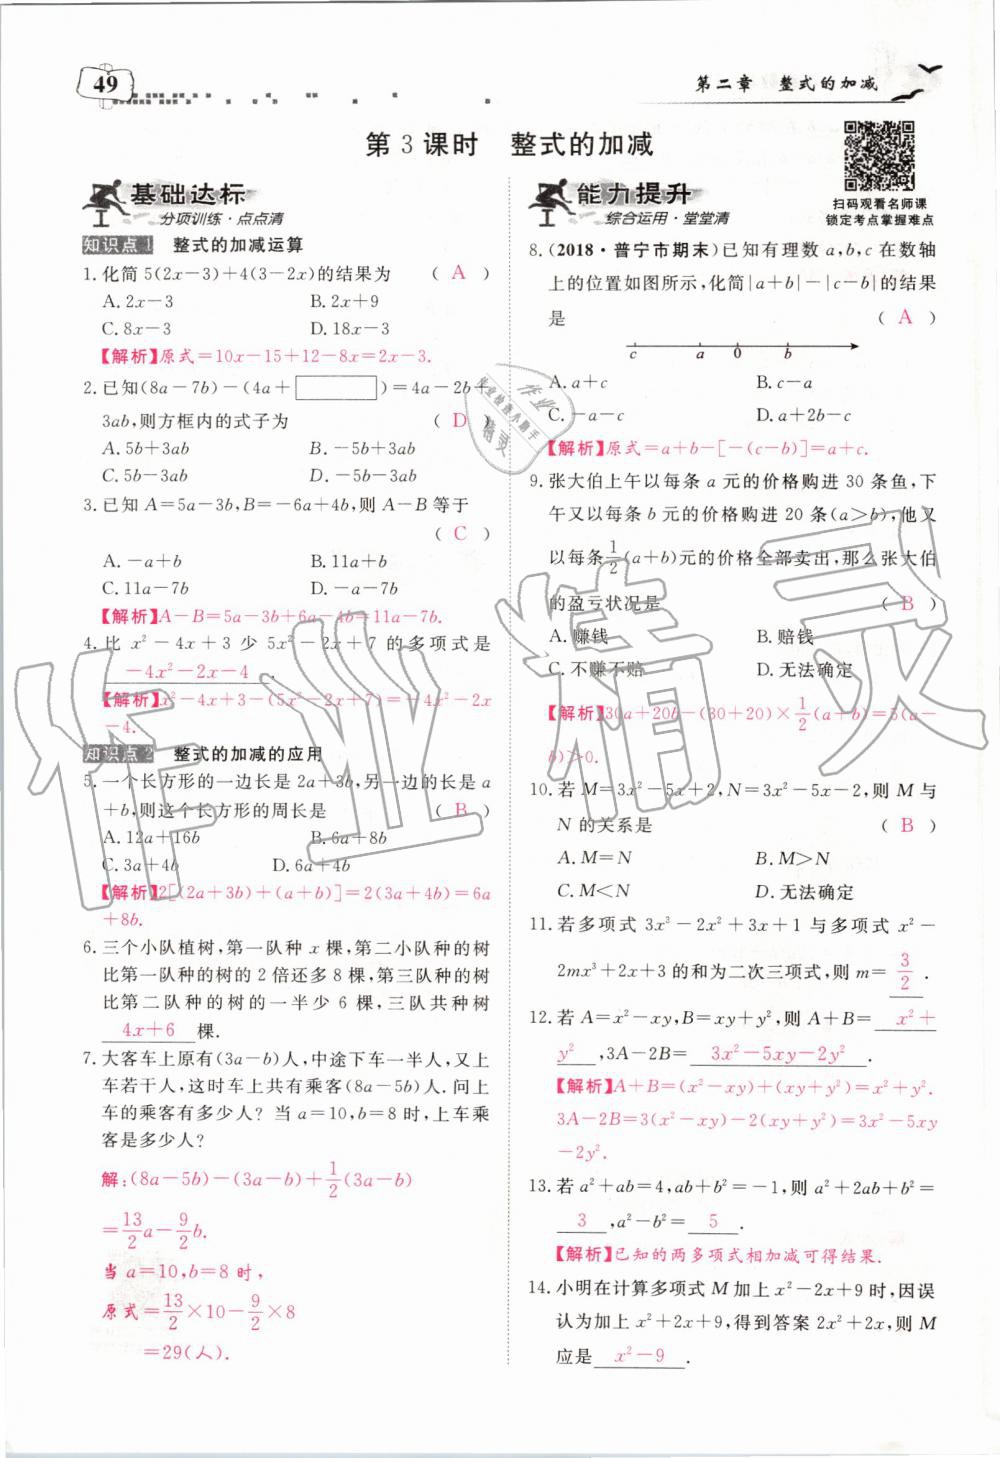 49
第二章 整式的加减
第3课时 整式的加减
基础达标
分项训练·点点清
知识点1 整式的加减运算
1.化简5(2x-3)+4(3-2x)的结果为 ( A )
A.2x-3 B.2x+9
C.8x-3 D.18x-3
【解析】原式=10x-15+12-8x=2x-3.
2.已知(8a-7b)-(4a+□)=4a-2b+
3ab,则方框内的式子为 ( D )
A.5b+3ab B.-5b+3ab
C.5b-3ab D.-5b-3ab
3.已知A=5a-3b,B=-6a+4b,则A-B等于
( C )
A.-a+b B.11a+b
C.11a-7b D.-a-7b
【解析】A-B=5a-3b+6a-4b=11a-7b.
4.比x²-4x+3少5x²-2x+7的多项式是
-4x²-2x-4.
【解析】x²-4x+3-(5x²-2x+7)=-4x²-2x
-4.
知识点2 整式的加减的应用
5.一个长方形的一边长是2a+3b,另一边的长是a
+b,则这个长方形的周长是 ( B )
A.12a+16b B.6a+8b
C.3a+4b D.6a+4b
【解析】2[(2a+3b)+(a+b)]=2(3a+4b)=6a
+8b.
6.三个小队植树,第一队种x棵,第二小队种的树
比第一队种的树的2倍还多8棵,第三队种的树
比第二队种的树的一半少6棵,三队共种树
4x+6 棵.
7.大客车上原有(3a-b)人,中途下车一半人,又上
车若干人,这时车上共有乘客(8a-5b)人.问上
车的乘客有多少人?当a=10,b=8时,上车乘
客是多少人?
解:(8a-5b)-(3a-b)+1/2(3a-b)
=13/2a-9/2b.
当a=10,b=8时,
原式=13/2×10-9/2×8
=29(人).
能力提升
综合运用·堂堂清
扫码观看名师课
锁定考点掌握难点
8.(2018·普宁市期末)已知有理数a,b,c在数轴
上的位置如图所示,化简|a+b|-|c-b|的结果
是 ( A )
c a 0 b
A.a+c B.c-a
C.-a-c D.a+2b-c
【解析】原式=a+b-[-(c-b)]=a+c.
9.张大伯上午以每条a元的价格购进30条鱼,下
午又以每条b元的价格购进20条(a>b),他又
以每条1/2(a+b)元的价格全部卖出,那么张大伯
的盈亏状况是 ( B )
A.赚钱 B.赔钱
C.不赚不赔 D.无法确定
【解析】30a+20b-(30+20)×1/2(a+b)=5(a-
b)>0.
10.若M=3x²-5x+2,N=3x²-5x-2,则M与
N的关系是 ( B )
A.M=N B.M>N
C.M<N D.无法确定
11.若多项式3x³-2x²+3x+1与多项式x²-
2mx³+2x+3的和为二次三项式,则m=3/2.
12.若A=x²-xy,B=xy+y²,则A+B=x²+
y²,3A-2B=3x²-5xy-2y².
【解析】A+B=(x²-xy)+(xy+y²)=x²+y².
3A-2B=3(x²-xy)-2(xy+y²)=3x²-5xy
-2y².
13.若a²+ab=4,ab+b²=-1,则a²+2ab+b²=
3,a²-b²=5.
【解析】已知的两多项式相加减可得结果.
14.小明在计算多项式M加上x²-2x+9时,因误
认为加上x²+2x+9,得到答案2x²+2x,则M
应是x²-9.
作业精灵